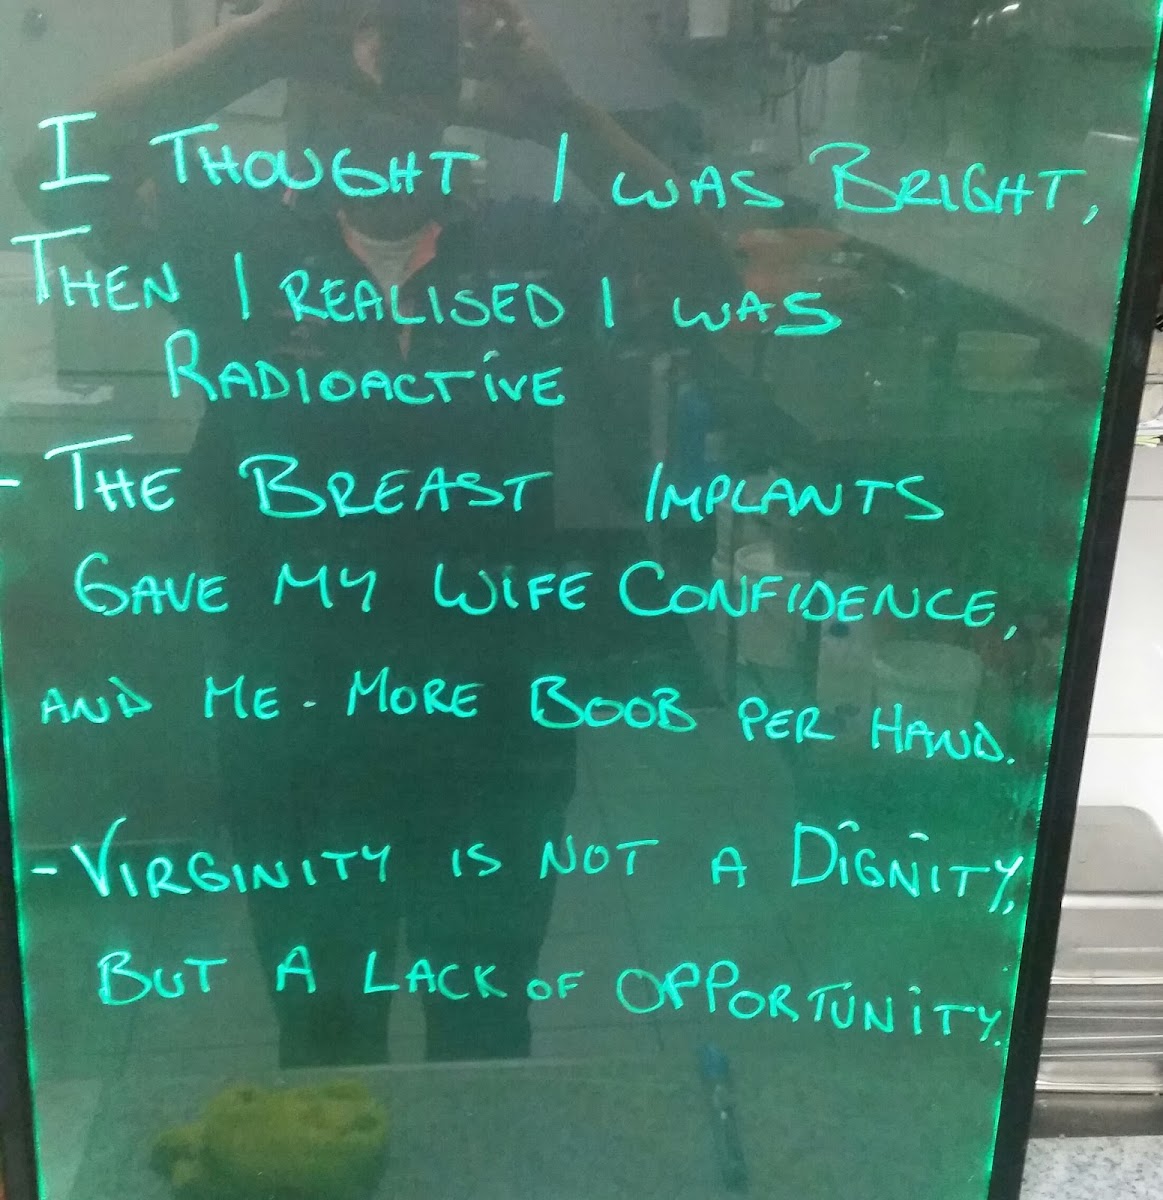 I THOUGHT I WAS BRIGHT,
THEN I REALISED I WAS
RADIOACTIVE
- THE BREAST IMPLANTS
GAVE MY WIFE CONFIDENCE,
AND ME - MORE BOOB PER HAND.
- VIRGINITY IS NOT A DIGNITY,
BUT A LACK OF OPPORTUNITY.